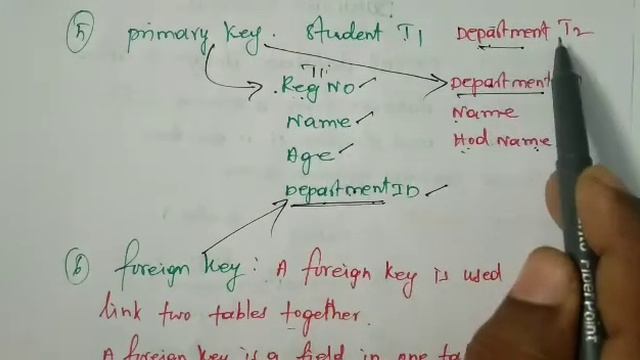 5) primary key. Student T1 Department T2
T1
Reg No Department
Name Name
Age Hod Name
Department ID
6) foreign key: A foreign key is used
link two tables together.
A foreign key is a field in one